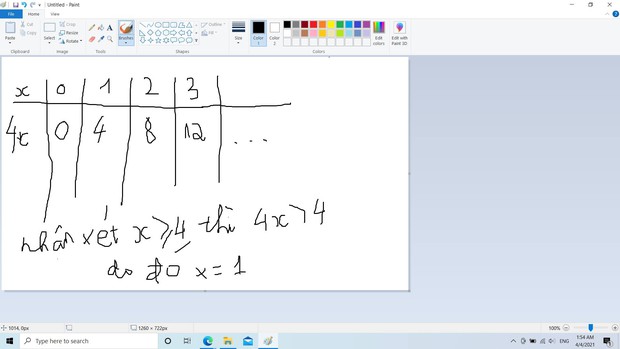 Untitled - Paint
File Home View
Paste Cut Copy Clipboard
Select Crop Resize Rotate Image
Tools
Brushes
Shapes Outline Fill
Size
Color 1 Color 2 Colors
Edit colors
Edit with Paint 3D
x 0 1 2 3
4x 0 4 8 12 ...
nhận xét x ⩾ 4 thì 4x > 4
do đó x = 1
1014, 0px 1260 × 722px 100%
Type here to search
ENG
1:54 AM
4/4/2021